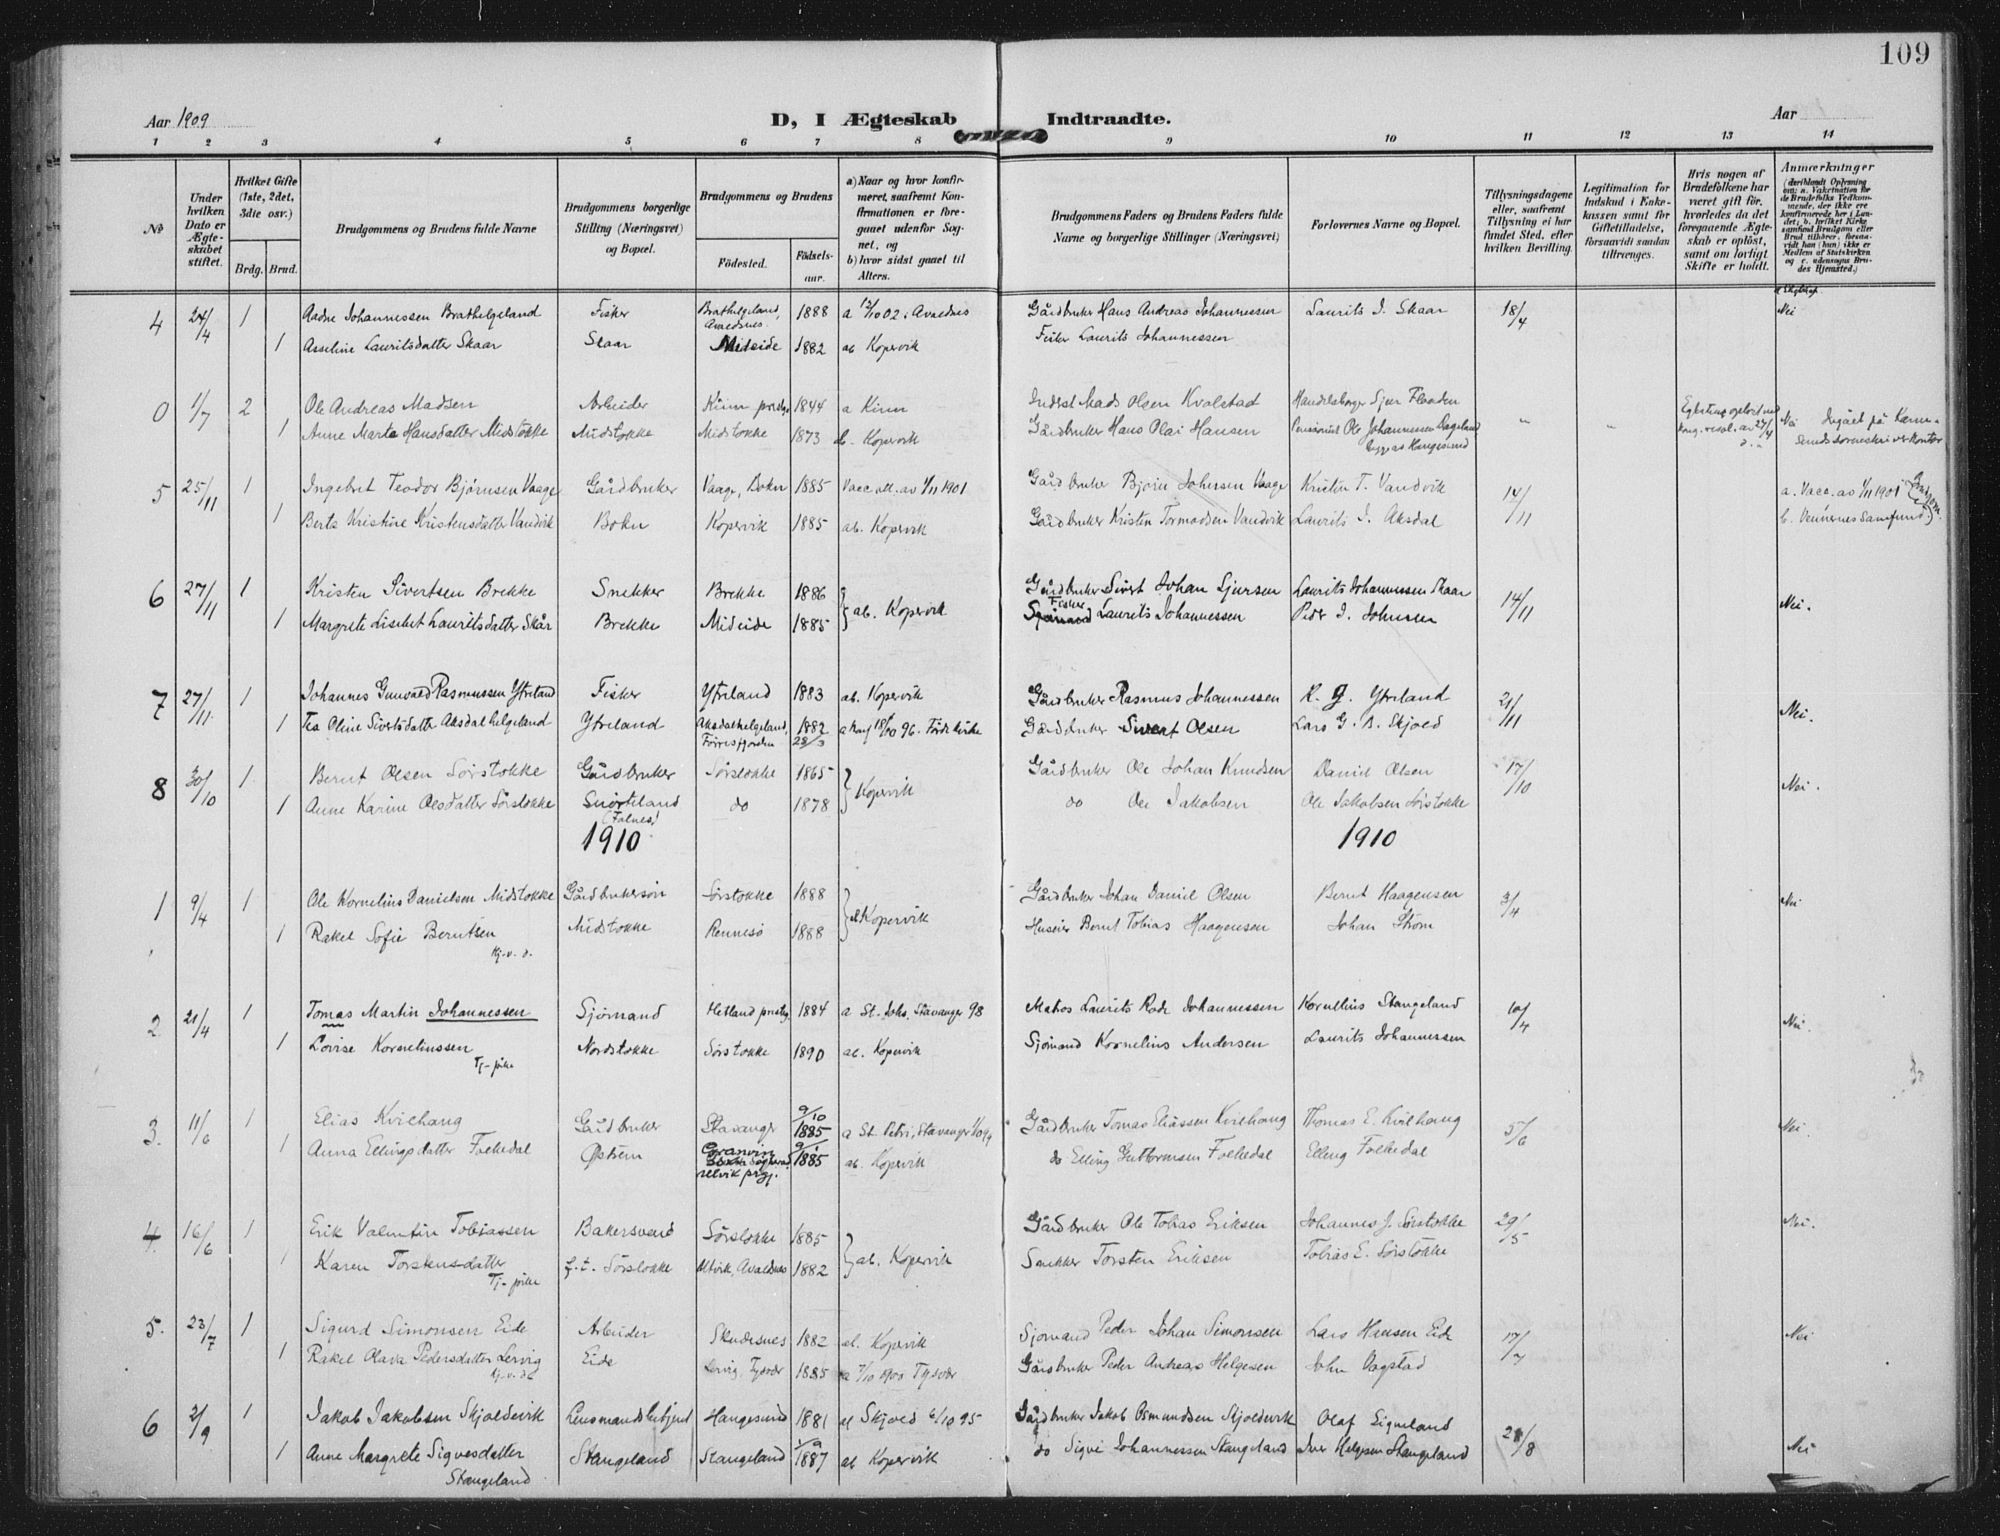 109
Aar 1909 D, I Ægteskab Indtraadte. Aar
1 2 3 4 5 6 7 8 9 10 11 12 13 14
№
Under hvilken Dato er Ægteskabet stiftet.
Hvilket Gifte (1ste, 2det, 3die osv.)
Brdg. Brud.
Brudgommens og Brudens fulde Navne
Brudgommens borgerlige Stilling (Næringsvei) og Bopæl.
Brudgommens og Brudens
Fødested. Fødsels-aar.
a) Naar og hvor konfirmeret, saafremt Konfirmationen er foregaaet udenfor Sognet, og
b) hvor sidst gaaet til Alters.
Brudgommens Faders og Brudens Faders fulde Navne og borgerlige Stillinger (Næringsvei)
Forlovernes Navne og Bopæl.
Tillysningsdagene eller, saafremt Tillysning ei har fundet Sted, efter hvilken Bevilling.
Legitimation for Indskud i Enkekassen samt for Giftetilladelse, forsaavidt saadan tiltrænges.
Hvis nogen af Brudefolkene har været gift før, hvorledes da det foregaaende Ægteskab er opløst, samt om lovligt Skifte er holdt.
Anmærkninger
(deriblandt Oplysning om: a. Vakcination for de Brudefolks Vedkommende, der ikke ere konfirmerede her i Landet; b. hvilket Kirkesamfund Brudgom eller Brud tilhører, forsaavidt han (hun) ikke er Medlem af Statskirken og c. udensogns Brudes Hjemsted.)
4 24/4 1 Aadne Johannessen Brathelgeland Fisker Brathelgeland, Avaldsnes 1888 a 12/10 02. Avaldsnes Gårdbruker Hans Andreas Johannessen Laurits I. Skaar 18/4 Nei
1 Asseline Lauritsdatter Skaar Skaar Mideide 1882 ab Kopervik Fisker Laurits Johannessen
0 1/7 2 Ole Andreas Madsen Arbeider Kinn prestgj 1844 a Kinn Inderst Mads Olsen Kvalstad Handelsborger Sjur Flooden
1 Anne Marta Hansdatter Midstokke Midstokke Midstokke 1873 ab. Kopervik Gårdbruker Hans Olai Hansen Pensionist Ole Johannessen " " Nei
5 25/11 1 Ingebret Teodor Bjørnsen Vaage Gårdbruker Vaage, Bokn 1885 Vacc.att. av 1/11 1901 Gårdbruker Bjørn Johnsen Vaage Kristen T. Vandvik 14/11 a. Vacc. av 1/11 1901
1 Berta Kristine Kristensdatter Vandvik Bokn Kopervik 1885 ab. Kopervik Gårdbruker Kristen Tormodsen Vandvik Laurits I. Aksdal b. Vennernes Samfund
6 27/11 1 Kristen Sivertsen Brekke Snekker Brekke 1886 ab. Kopervik Gårdbruker Sivert Johan Sjursen Laurits Johannessen Skaar 14/11 Nei.
1 Margrete Lisebet Lauritsdatter Skår Brekke Mideide 1885 Fisker Laurits Johannessen Peder I. Johnsen
7 27/11 1 Johannes Gunvald Rasmussen Ytreland Fisker Ytreland 1883 ab. Kopervik Gårdbruker Rasmus Johannessen R. J. Ytreland 21/11 Nei.
1 Tea Oline Sivertsdatter Aksdalhelgeland Ytreland Aksdalhelgeland, Førresfjorden 1882 28/3 a Konf 18/10 96. Førde kirke Gårdbruker Sivert Olsen Lars G. A. Skjold
8 30/10 1 Bernt Olsen Sørstokke Gårdbruker Sørstokke 1865 Kopervik Gårdbruker Ole Johan Knudsen Daniel Olsen 17/10 Nei.
1 Anne Karine Olsdatter Sørstokke Snørteland (Falnes) do 1878 do Ole Jakobsen Ole Jakobsen Sørstokke
1910 1910
1 9/4 1 Ole Kornelius Danielsen Midstokke Gårdbrukersøn Sørstokke 1888 ab Kopervik Gårdbruker Johan Daniel Olsen Bernt Haagensen 3/4 Nei
1 Rakel Sofie Berntsen Midstokke Rennesø 1888 Huseier Bernt Tobias Haagensen Johan Strøm
Kj. v. d.
2. 21/4 1 Tomas Martin Johannessen Sjømand Hetland prestgj. 1884 a St. Johs. Stavanger 98 Matros Laurits Rode Johannessen Kornelius Stangeland 10/4 Nei
1 Lovise Korneliussen Nordstokke Sørstokke 1890 ab. Kopervik Sjømand Kornelius Andersen Laurits Johannessen
Tj-pike
3. 11/6 1 Elias Kvilhaug Gårdbruker Stavanger 9/10 1885 a St. Petri, Stavanger Gårdbruker Tomas Eliassen Kvilhaug Thomas E. Kvilhaug 5/6 Nei.
1 Anna Ellingsdatter Folkedal Østrem Granvin 9/1 1885 ab. Kopervik do Elling Guttormsen Folkedal Elling Folkedal
4. 16/6 1 Erik Valentin Tobiassen Bakersvend Sørstokke 1885 ab. Kopervik Gårdbruker Ole Tobias Eriksen Johannes J. Sørstokke 29/5 Nei.
1 Karen Torstensdatter f.t. Sørstokke Utvik, Avaldsnes 1882 Snekker Torsten Eriksen Tobias E. Sørstokke
Tj-pike
5. 23/7 1 Sigurd Simonsen Eide Arbeider Skudesnes 1882 ab. Kopervik Sjømand Peder Johan Simonsen Lars Hansen Eide 17/7 Nei
1 Rakel Olava Pedersdatter Lervig Eide Lervig, Tysvær 1885 a 7/10 1900 Tysvær Gårdbruker Peder Andreas Helgesen John Vagstad
6 2/9 1 Jakob Jakobsen Skjoldevik Lensmandsbetjent Haugesund 1881 ab Skjold 6/10 95 Gårdbruker Jakob Osmundsen Skjoldevik Olaf Liqueland 21/8 Nei
1 Anne Margrete Sigvesdatter Stangeland Stangeland Stangeland 1/9 1887 ab Kopervik do Sigve Johannessen Stangeland Iver Helgesen Stangeland